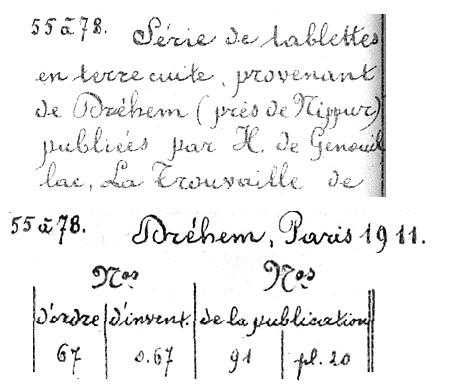 55 à 78. Série de tablettes
en terre cuite, provenant
de Dréhem (près de Nippur)
publiées par H. de Genouil
lac, La Trouvaille de
55 à 78. Dréhem, Paris 1911.
Nos Nos
d'ordre d'invent. de la publication
67 0.67 91 pl. 20